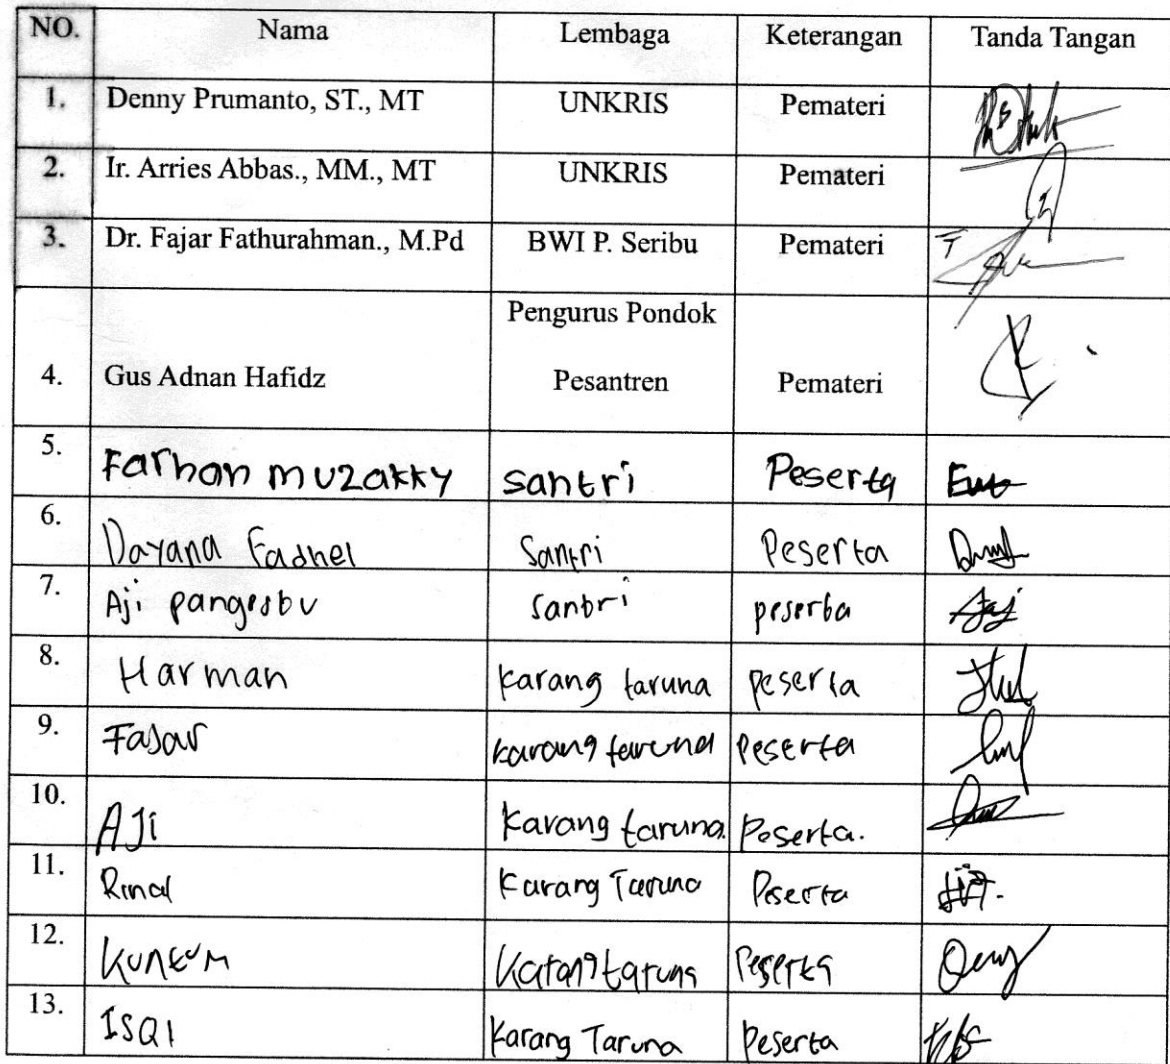 NO. Nama Lembaga Keterangan Tanda Tangan
1. Denny Prumanto, ST., MT UNKRIS Pemateri
2. Ir. Arries Abbas., MM., MT UNKRIS Pemateri
3. Dr. Fajar Fathurahman., M.Pd BWI P. Seribu Pemateri
Pengurus Pondok
4. Gus Adnan Hafidz Pesantren Pemateri
5. Farhan muzakky santri Peserta
6. Dayana Fadhel Santri Peserta
7. Aji pangestu santri peserta
8. Harman karang taruna peserta
9. Fajar karang taruna Peserta
10. AJi Karang taruna. Peserta.
11. Karang Taruna Peserta
12. Kuntum Karang taruna Peserta
13. ISQI Karang Taruna Peserta